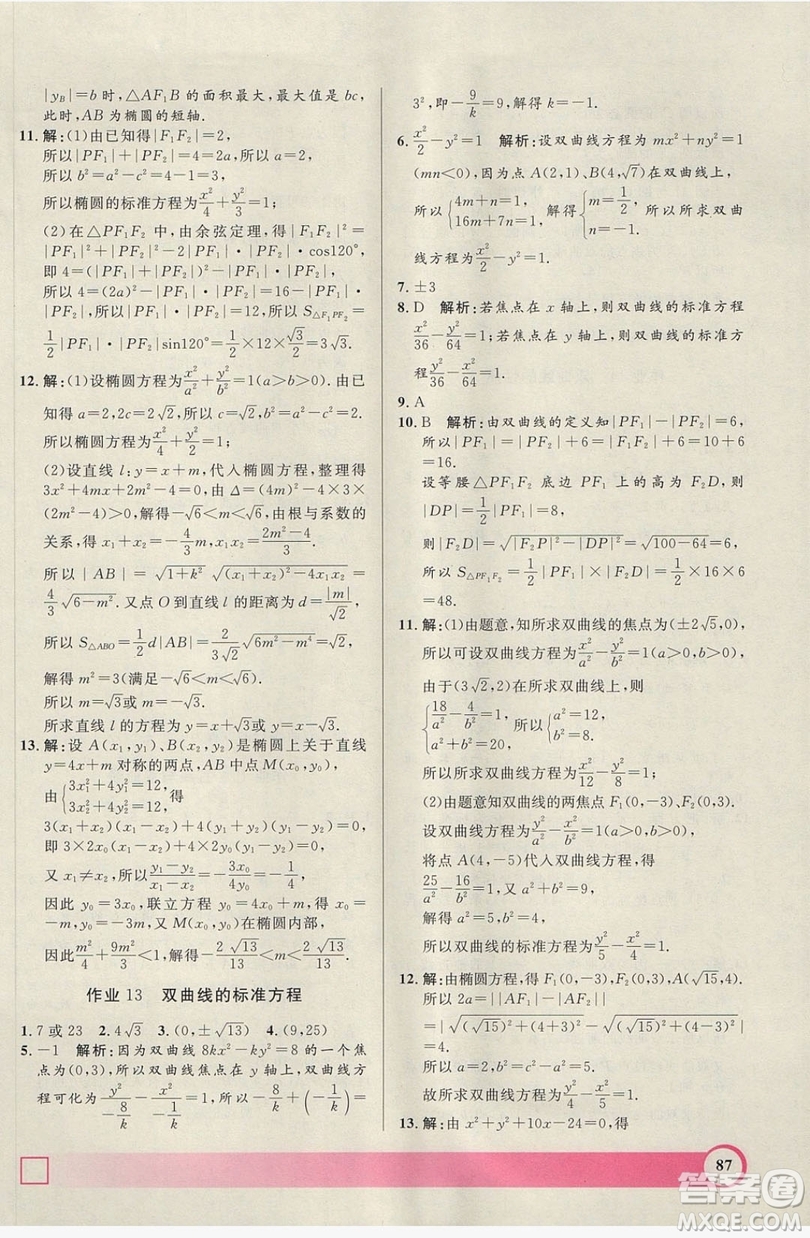 |y_B|=b 时,△AF₁B 的面积最大,最大值是 bc,
此时,AB 为椭圆的短轴.
11. 解:(1)由已知得|F₁F₂|=2,
所以|PF₁|+|PF₂|=4=2a,所以 a=2.
所以 b²=a²-c²=4-1=3,
所以椭圆的标准方程为x²/4+y²/3=1;
(2)在△PF₁F₂ 中,由余弦定理,得|F₁F₂|²
=|PF₁|²+|PF₂|²-2|PF₁|·|PF₂|·cos120°,
即 4=(|PF₁|+|PF₂|)²-|PF₁|·|PF₂|,
所以 4=(2a)²-|PF₁||PF₂|=16-|PF₁|·
|PF₂|,所以|PF₁||PF₂|=12,所以 S_△F₁PF₂=
1/2|PF₁||PF₂|sin120°=1/2×12×√3/2=3√3.
12. 解:(1)设椭圆方程为x²/a²+y²/b²=1(a>b>0). 由已
知得 a=2,2c=2√2,所以 c=√2,所以 b²=a²-c²
=2,所以椭圆方程为x²/4+y²/2=1.
(2)设直线 l:y=x+m,代入椭圆方程,整理得
3x²+4mx+2m²-4=0,由 Δ=(4m)²-4×3×
(2m²-4)>0,解得-√6<m<√6,由根与系数的
关系,得 x₁+x₂=-4/3m,x₁x₂=(2m²-4)/3.
所以 |AB| = √(1+k²) √((x₁+x₂)²-4x₁x₂) =
4/3√(6-m²). 又点 O 到直线 l 的距离为 d=|m|/√2,
所以 S_△ABO=1/2d|AB|=2/(3√2)√(6m²-m⁴)=√2,
解得 m²=3(满足-√6<m<√6).
所以 m=√3或 m=-√3.
所求直线 l 的方程为 y=x+√3或 y=x-√3.
13. 解:设 A(x₁,y₁)、B(x₂,y₂)是椭圆上关于直线
y=4x+m 对称的两点,AB 中点 M(x₀,y₀),
由{3x₁²+4y₁²=12, 3x₂²+4y₂²=12,得
3(x₁+x₂)(x₁-x₂)+4(y₁+y₂)(y₁-y₂)=0,
即 3x₀(x₁-x₂)+4y₀(y₁-y₂)=0,
又 x₁≠x₂,所以(y₁-y₂)/(x₁-x₂)=-3x₀/4y₀=-1/4,
因此 y₀=3x₀,联立方程 y₀=4x₀+m,得 x₀=
-m,y₀=-3m,又 M(x₀,y₀)在椭圆内部,
因此m²/4+9m²/3<1,解得-2√13/13<m<2√13/13.
作业 13 双曲线的标准方程
1. 7 或 23 2. 4√3 3. (0,±√13) 4. (9,25)
5. -1 解析:因为双曲线 8kx²-ky²=8 的一个焦
点为(0,3),所以双曲线焦点在 y 轴上,双曲线方
程可化为y²/(-8/k)-x²/(-1/k)=1,所以-8/k+(-1/k)=
3²,即-9/k=9,解得 k=-1.
6. x²/2-y²=1 解析:设双曲线方程为 mx²+ny²=1
(mn<0),因为点 A(2,1)、B(4,√7)在双曲线上,
所以{4m+n=1, 16m+7n=1,解得{m=1/2, n=-1.所以所求双曲
线方程为x²/2-y²=1.
7. ±3
8. D 解析:若焦点在 x 轴上,则双曲线的标准方程
为x²/36-y²/64=1;若焦点在 y 轴上,则双曲线的标准方
程y²/36-x²/64=1.
9. A
10. B 解析:由双曲线的定义知|PF₁|-|PF₂|=6,
所以|PF₁|=|PF₂|+6=|F₁F₂|+6=10+6
=16.
设等腰△PF₁F₂ 底边 PF₁ 上的高为 F₂D,则
|DP|=1/2|PF₁|=8,
则|F₂D|=√(|F₂P|²-|DP|²)=√(100-64)=6.
所以 S_△PF₁F₂=1/2|PF₁|×|F₂D|=1/2×16×6
=48.
11. 解:(1)由题意,知所求双曲线的焦点为(±2√5,0),
所以可设双曲线方程为x²/a²-y²/b²=1(a>0,b>0),
由于(3√2,2)在所求双曲线上,所以
{18/a²-4/b²=1, a²+b²=20,所以{a²=12, b²=8.
所以所求双曲线方程为x²/12-y²/8=1.
(2)由题意知双曲线的两焦点 F₁(0,-3)、F₂(0,3).
设双曲线方程为y²/a²-x²/b²=1(a>0,b>0),
将点 A(4,-5)代入双曲线方程,得
25/a²-16/b²=1,又 a²+b²=9,
解得 a²=5,b²=4.
所以双曲线的标准方程为y²/5-x²/4=1.
12. 解:由椭圆方程,得 F₁(0,-3)、F₂(0,3),A(√15,4).
所以 2a=||AF₁|-|AF₂||
=|√((√15)²+(4+3)²)-√((√15)²+(4-3)²)|
=4.
所以 a=2,又 c=3,b²=c²-a²=5.
故所求双曲线的标准方程为y²/4-x²/5=1.
13. 解:由 x²+y²+10x-24=0,
87
答案圈
MXQE.COM